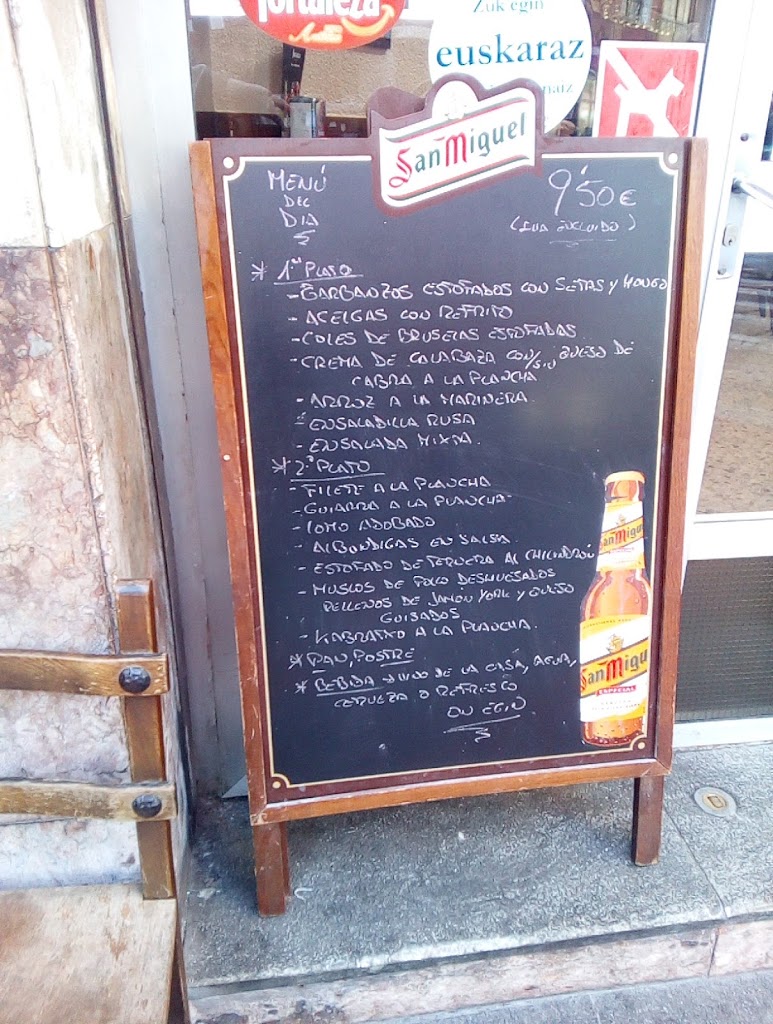 fortaleza
Zuk egin
euskaraz
San Miguel
MENÚ
DEL
DIA
9'50€
(IVA INCLUIDO)
* 1ER PLATO
- GARBANZOS ESTOFADOS CON SETAS Y HONGO
- ACELGAS CON REFRITO
- COLES DE BRUSELAS ESTOFADAS
- CREMA DE CALABAZA CON/SIN QUESO DE
CABRA A LA PLANCHA
- ARROZ A LA MARINERA
- ENSALADILLA RUSA
- ENSALADA MIXTA.
* 2º PLATO
- FILETE A LA PLANCHA
- GUIARRA A LA PLANCHA
- LOMO ADOBADO
- ALBONDIGAS EN SALSA.
- ESTOFADO DE TERNERA AL CHILINDRÓN
- MUSLOS DE POLLO DESHUESADOS
RELLENOS DE JAMÓN YORK Y QUESO
GUISADOS
- LIBRATXO A LA PLANCHA.
* PAN, POSTRE
* BEBIDA → VINO DE LA CASA, AGUA,
CERVEZA O REFRESCO
ON EGIN
San Migu
San Migu
ESPECIAL